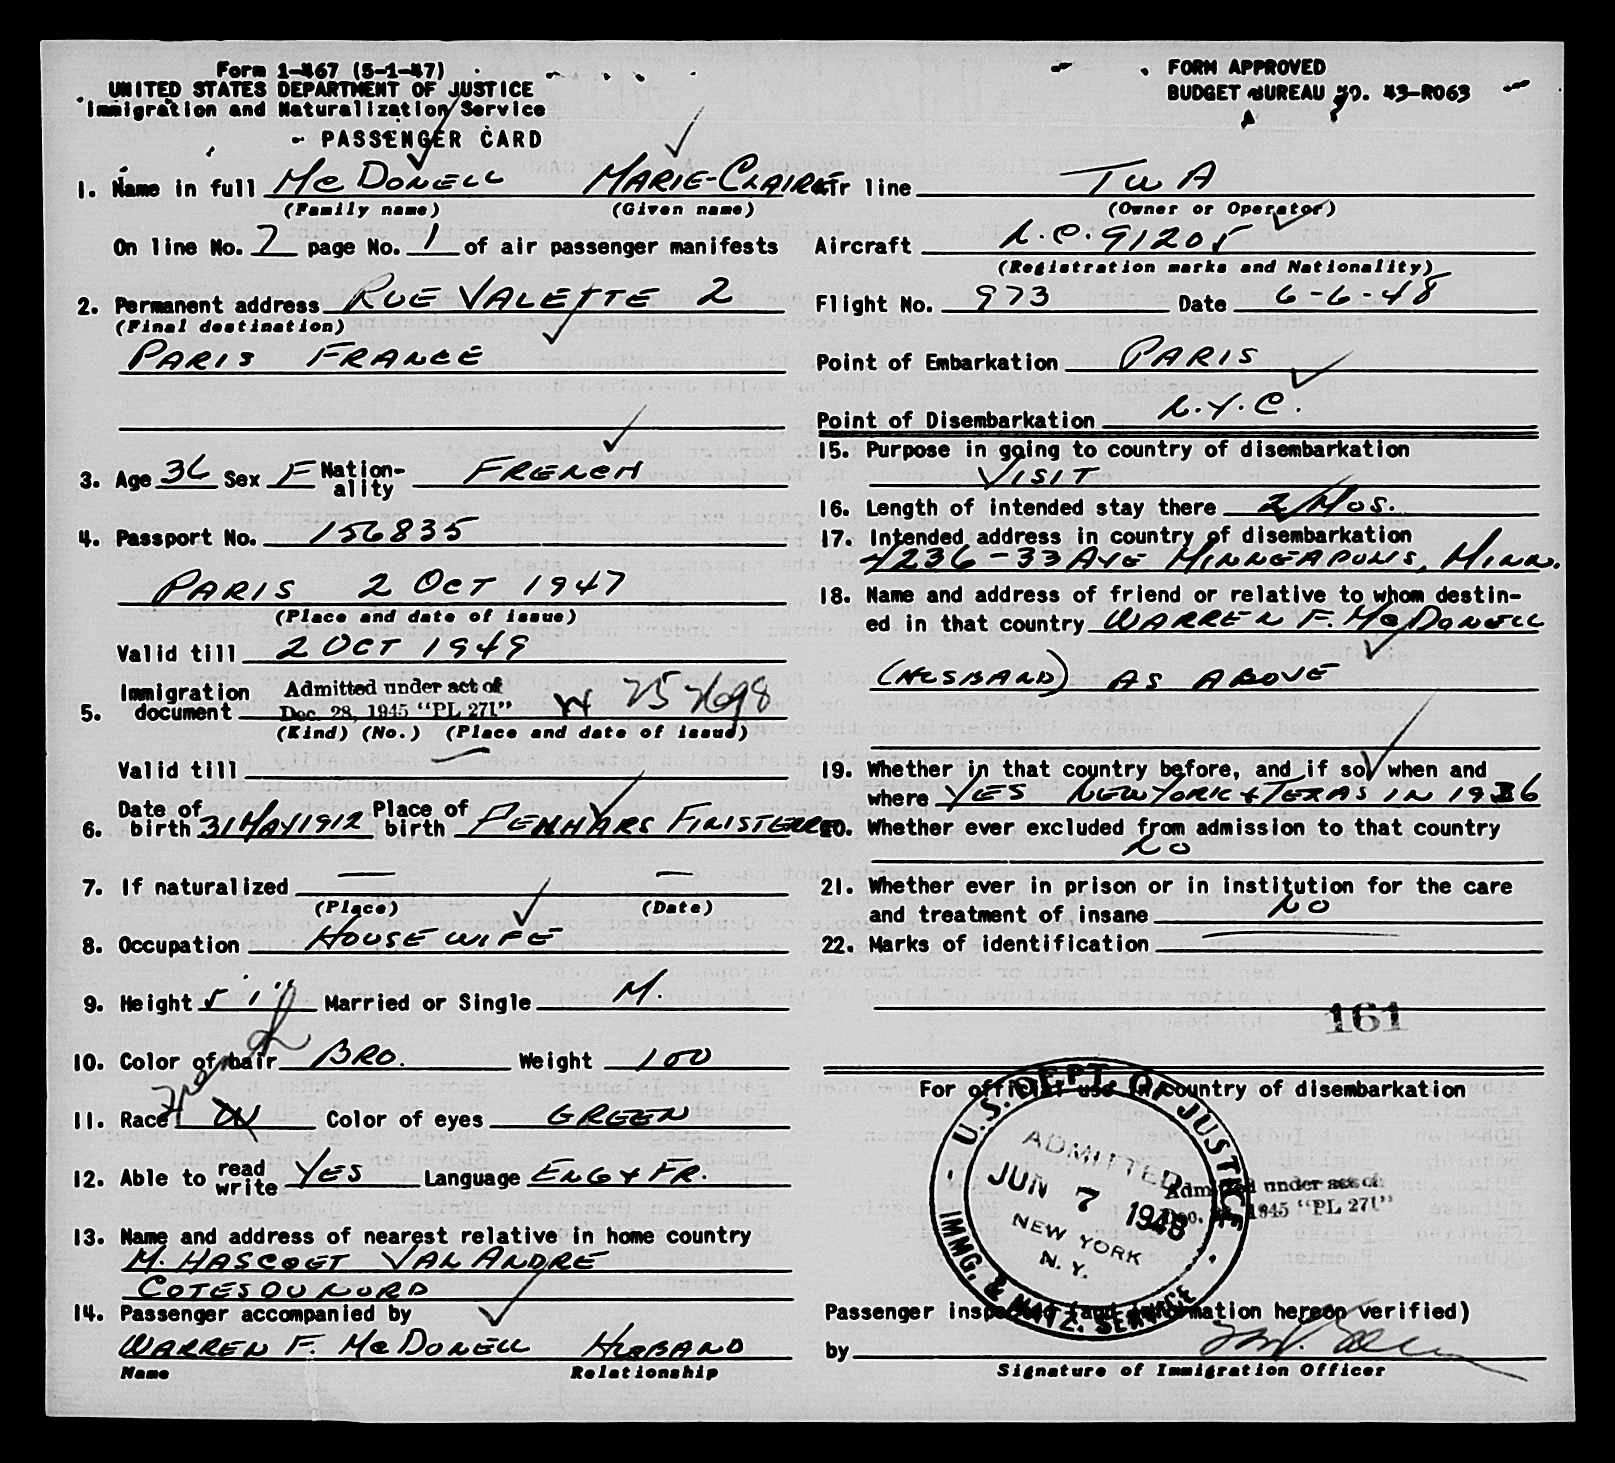 Form 1-467 (5-1-47)
UNITED STATES DEPARTMENT OF JUSTICE
Immigration and Naturalization Service
PASSENGER CARD
FORM APPROVED
BUDGET BUREAU NO. 43-R063
1. Name in full McDONELL MARIE-CLAIRE
(Family name) (Given name)
On line No. 7 page No. 1 of air passenger manifests
2. Permanent address RUE VALETTE 2
(Final destination)
PARIS FRANCE
3. Age 36 Sex F Nation-ality FRENCH
4. Passport No. 156835
PARIS 2 OCT 1947
(Place and date of issue)
Valid till 2 OCT 1949
5. Immigration document Admitted under act of
Dec. 28, 1945 "PL 271"
(Kind) (No.) (Place and date of issue)
Valid till —
6. Date of birth 31 MAY 1912 Place of birth PENHARS FINISTERRE
7. If naturalized — —
(Place) (Date)
8. Occupation HOUSEWIFE
9. Height 5'1" Married or Single M.
10. Color of hair BRO. Weight 100
11. Race W French Color of eyes GREEN
12. Able to read write YES Language ENG + FR.
13. Name and address of nearest relative in home country
M. HASCOET VAL ANDRE
COTES DU NORD
14. Passenger accompanied by
WARREN F. McDONELL HUSBAND
Name Relationship
Air line TWA
(Owner or Operator)
Aircraft N.C. 91205
(Registration marks and Nationality)
Flight No. 973 Date 6-6-48
Point of Embarkation PARIS
Point of Disembarkation N.Y.C.
15. Purpose in going to country of disembarkation
VISIT
16. Length of intended stay there 2 MOS.
17. Intended address in country of disembarkation
4236-33 AVE MINNEAPOLIS, MINN.
18. Name and address of friend or relative to whom destin-
ed in that country WARREN F. McDONELL
(HUSBAND) AS ABOVE
19. Whether in that country before, and if so, when and
where YES NEW YORK + TEXAS IN 1936
20. Whether ever excluded from admission to that country
NO
21. Whether ever in prison or in institution for the care
and treatment of insane NO
22. Marks of identification —
161
For official use in country of disembarkation
U.S. DEPT. OF JUSTICE
ADMITTED
JUN 7 1948
NEW YORK
N. Y.
IMMG. & NATZ. SERVICE
Admitted under act of
Dec. 28, 1945 "PL 271"
Passenger inspected (and information hereon verified)
by
Signature of Immigration Officer